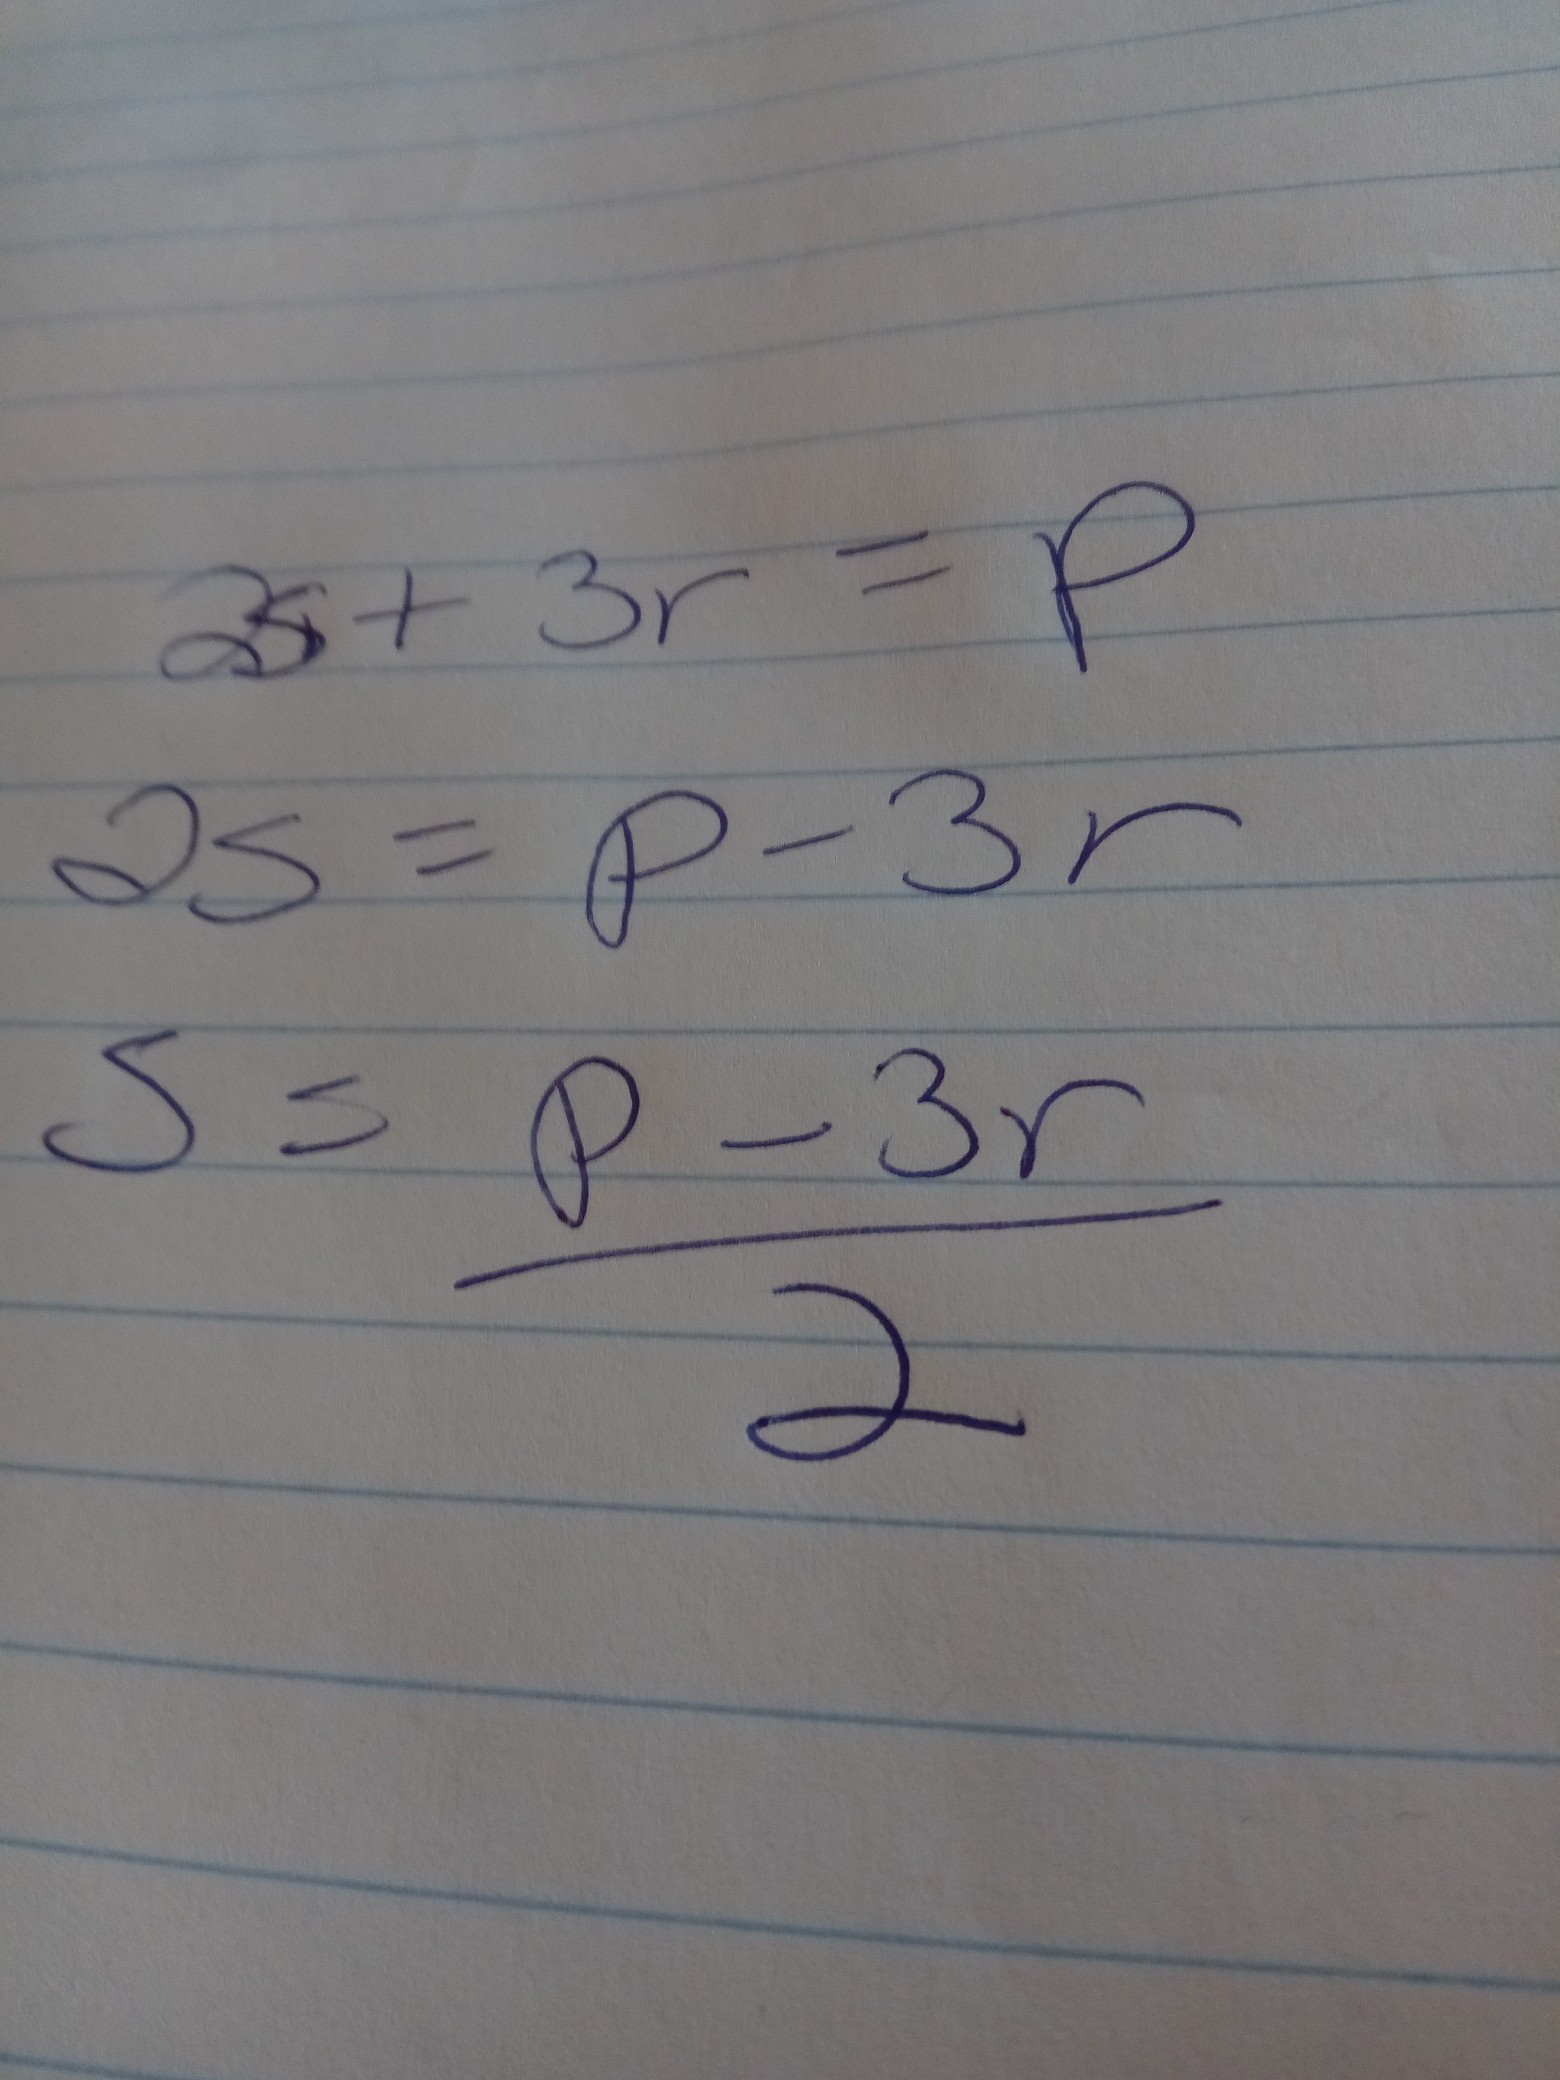 2s + 3r = p
2s = p - 3r
s = p - 3r
2